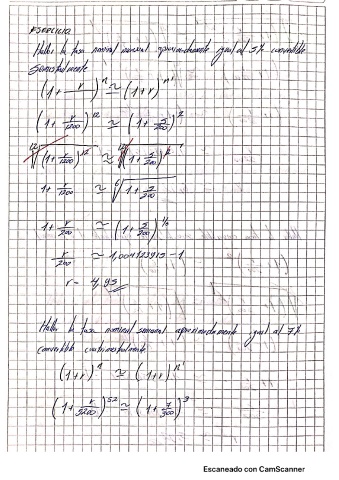 Ejercicio
Hallar la tasa nominal mensual aproximadamente igual al 5% convertible
Semestralmente
(1 + r)^n ≃ (1 + r)^n'
(1 + r/1200)^12 ≃ (1 + 5/200)^2
12√(1 + r/1200)^12 ≃ 12√(1 + 5/200)^2
1 + r/1200 ≃ 6√1 + 5/200
1 + r/1200 ≃ (1 + 5/200)^1/6
≃ 1,004123915 - 1
r = 4,95
Hallar la tasa nominal semanal aproximadamente igual al 7%
convertible cuatrimestralmente
(1 + r)^n ≃ (1 + r)^n'
(1 + r/5200)^52 ≃ (1 + 7/300)^3
Escaneado con CamScanner